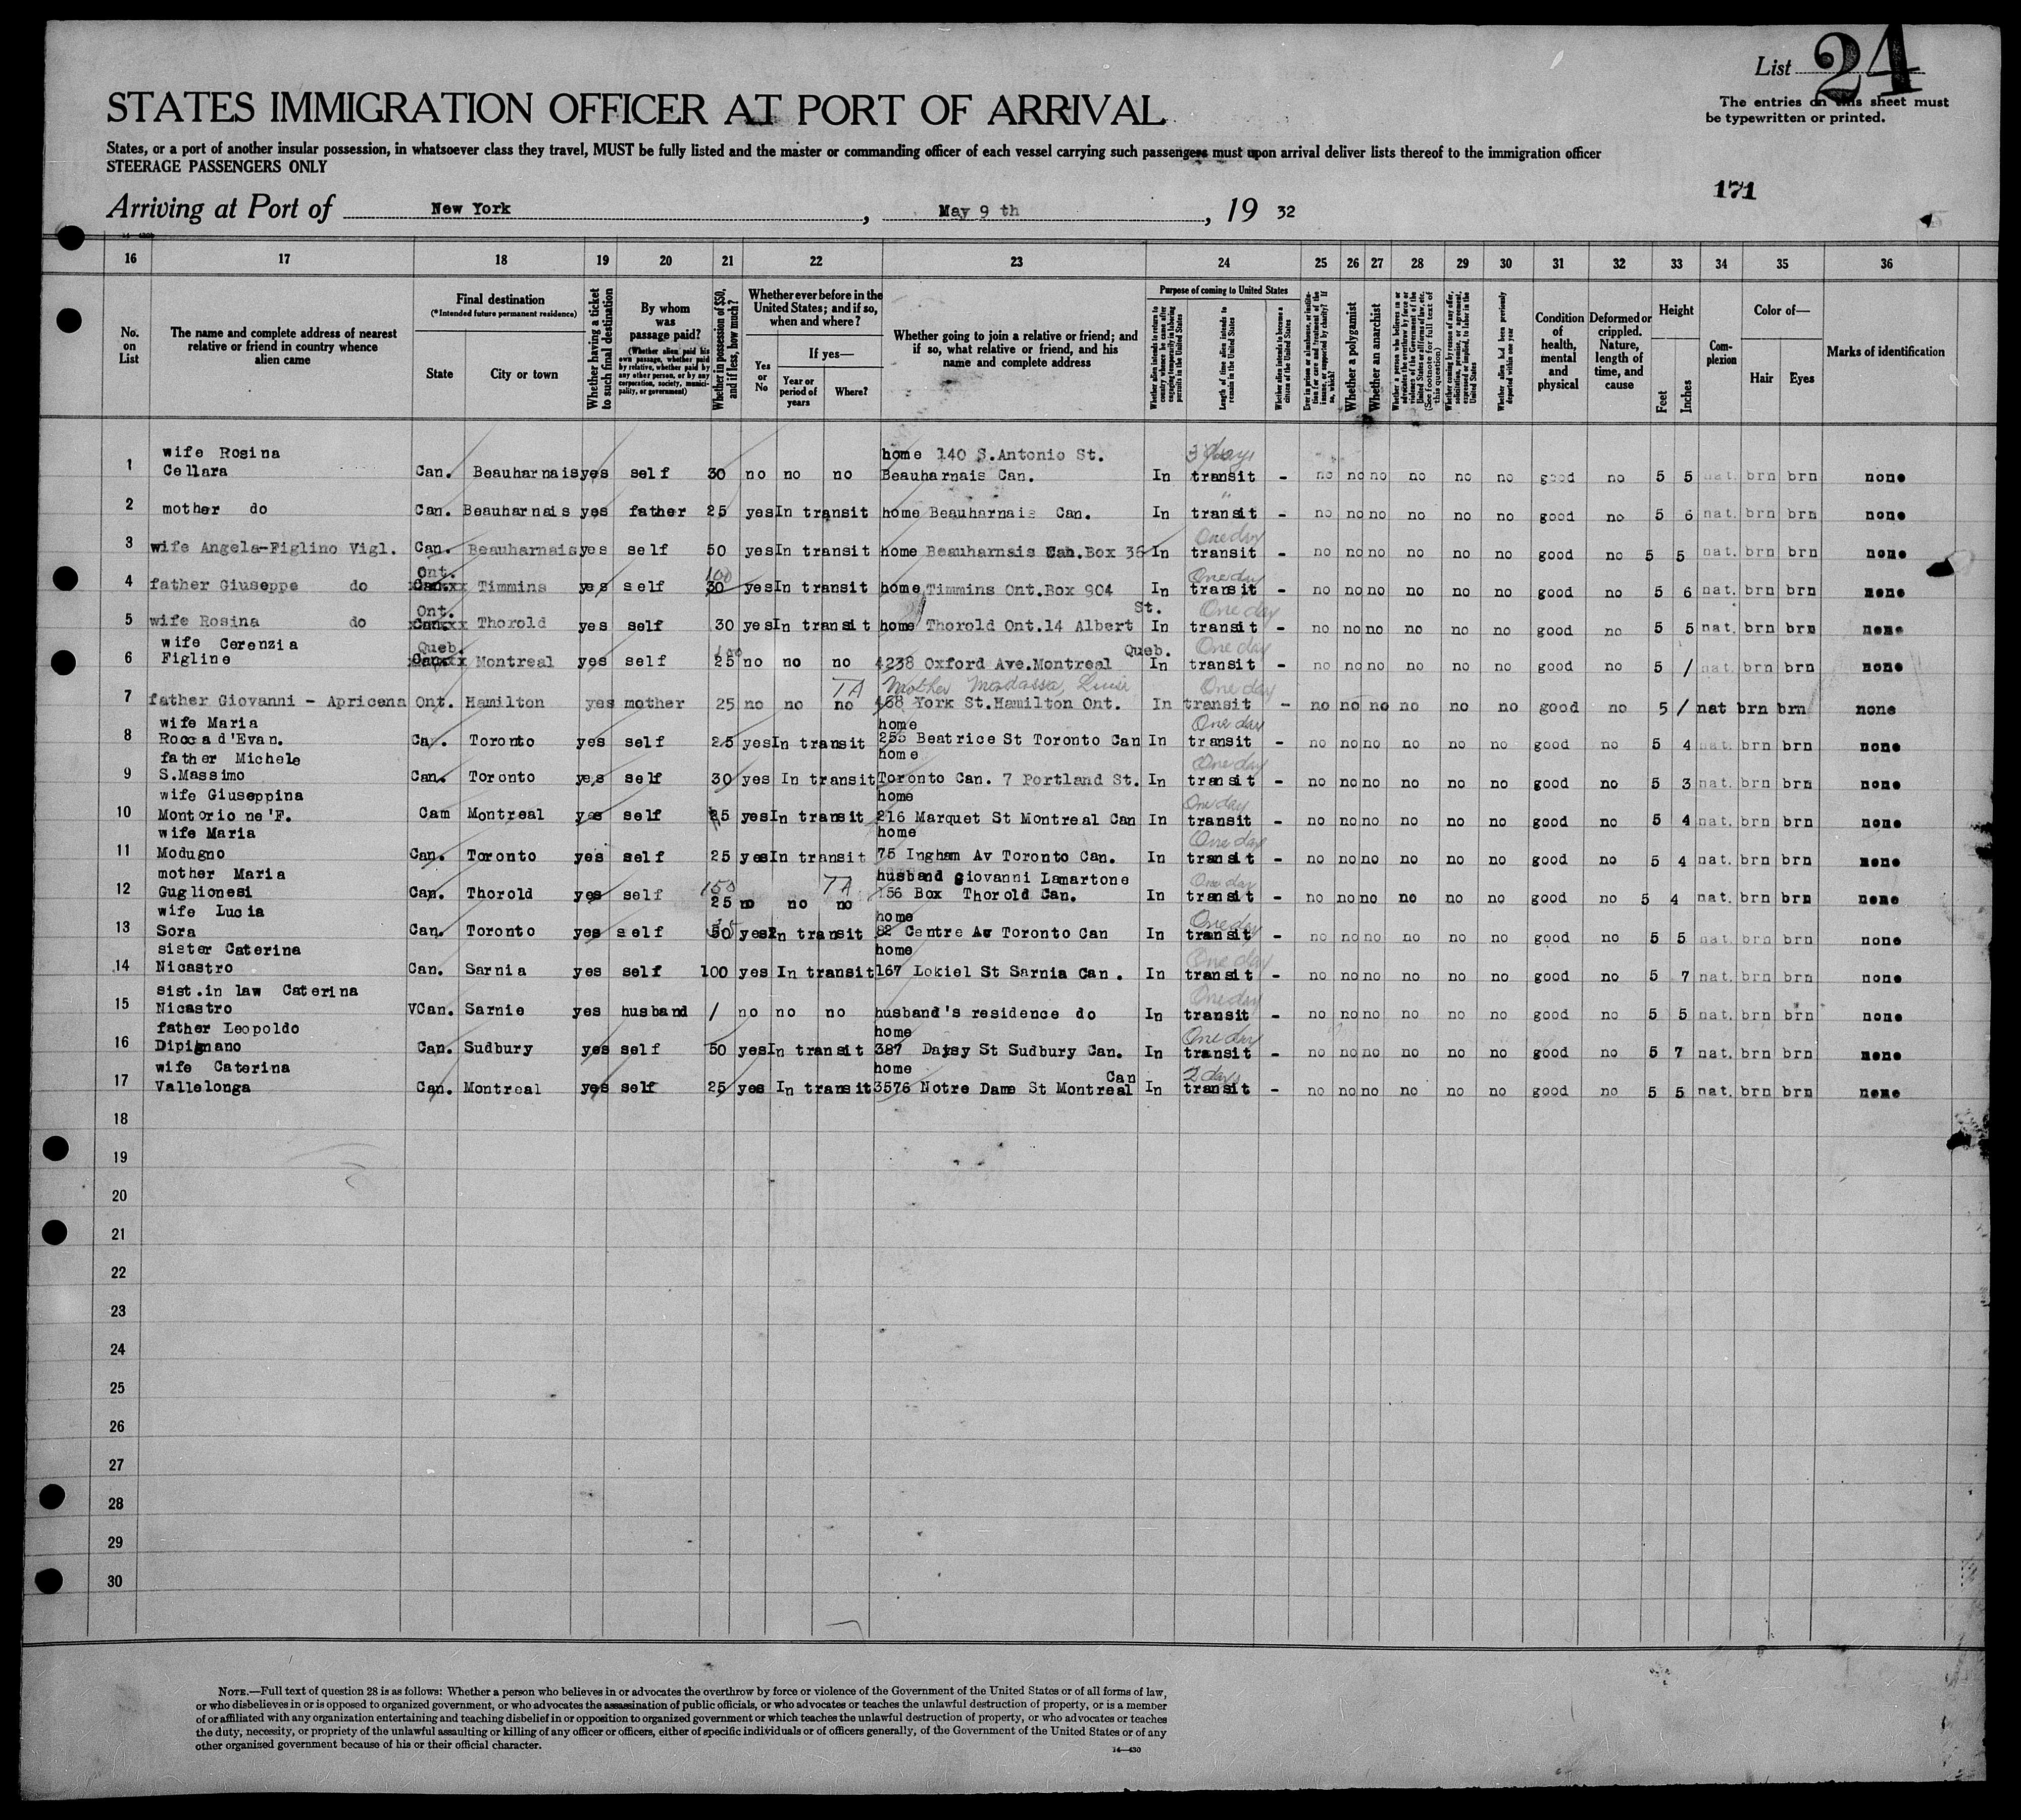 List 24
The entries on this sheet must
be typewritten or printed.
STATES IMMIGRATION OFFICER AT PORT OF ARRIVAL
States, or a port of another insular possession, in whatsoever class they travel, MUST be fully listed and the master or commanding officer of each vessel carrying such passengers must upon arrival deliver lists thereof to the immigration officer
STEERAGE PASSENGERS ONLY
171
Arriving at Port of New York, May 9 th, 19 32
16 17 18 19 20 21 22 23 24 25 26 27 28 29 30 31 32 33 34 35 36
No. on List
The name and complete address of nearest relative or friend in country whence alien came
Final destination
(*Intended future permanent residence)
State
City or town
Whether having a ticket to such final destination
By whom was passage paid?
(Whether alien paid his own passage, whether paid by relative, whether paid by any other person, or by any corporation, society, municipality, or government)
Whether in possession of $50, and if less, how much?
Whether ever before in the United States; and if so, when and where?
Yes or No
If yes—
Year or period of years
Where?
Whether going to join a relative or friend; and if so, what relative or friend, and his name and complete address
Purpose of coming to United States
Whether alien intends to return to country whence he came after engaging temporarily in laboring pursuits in the United States
Length of time alien intends to remain in the United States
Whether alien intends to become a citizen of the United States
Ever in prison or almshouse, or institution for care and treatment of the insane, or supported by charity? If so, which?
Whether a polygamist
Whether an anarchist
Whether a person who believes in or advocates the overthrow by force or violence of the Government of the United States or all forms of law, etc. (See footnote for full text of this question)
Whether coming by reason of any offer, solicitation, promise, or agreement, expressed or implied, to labor in the United States
Whether alien had been previously deported within one year
Condition of health, mental and physical
Deformed or crippled. Nature, length of time, and cause
Height
Feet
Inches
Complexion
Color of—
Hair
Eyes
Marks of identification
wife Rosina home 140 S.Antonio St. 3 days
1 Cellara Can. Beauharnais yes self 30 no no no Beauharnais Can. In transit - no no no no no no good no 5 5 nat. brn brn none
2 mother do Can. Beauharnais yes father 25 yes In transit home Beauharnais Can. In transit - no no no no no no good no 5 6 nat. brn brn none
One day
3 wife Angela-Figlino Vigl. Can. Beauharnais yes self 50 yes In transit home Beauharnais Can.Box 36 In transit - no no no no no no good no 5 5 nat. brn brn none
Ont. 100 One day
4 father Giuseppe do Can.xx Timmins yes self 30 yes In transit home Timmins Ont.Box 904 In transit - no no no no no no good no 5 6 nat. brn brn none
Ont. St. One day
5 wife Rosina do Can.xx Thorold yes self 30 yes In transit home Thorold Ont.14 Albert In transit - no no no no no no good no 5 5 nat. brn brn none
wife Cerenzia Queb. 100 Queb. One day
6 Figline Can.xx Montreal yes self 25 no no no 4238 Oxford Ave.Montreal In transit - no no no no no no good no 5 / nat. brn brn none
TA Mother One day
7 father Giovanni - Apricena Ont. Hamilton yes mother 25 no no no 468 York St.Hamilton Ont. In transit - no no no no no no good no 5 / nat brn brn none
wife Maria home One day
8 Rocca d'Evan. Can. Toronto yes self 25 yes In transit 255 Beatrice St Toronto Can In transit - no no no no no no good no 5 4 nat. brn brn none
father Michele home One day
9 S.Massimo Can. Toronto yes self 30 yes In transit Toronto Can. 7 Portland St. In transit - no no no no no no good no 5 3 nat. brn brn none
wife Giuseppina home One day
10 Montorio ne'F. Cam Montreal yes self 25 yes In transit 216 Marquet St Montreal Can In transit - no no no no no no good no 5 4 nat. brn brn none
wife Maria home One day
11 Modugno Can. Toronto yes self 25 yes In transit 75 Ingham Av Toronto Can. In transit - no no no no no no good no 5 4 nat. brn brn none
mother Maria 150 TA husband Giovanni Lamartone One day
12 Guglionesi Can. Thorold yes self 25 no no no 156 Box Thorold Can. In transit - no no no no no no good no 5 4 nat. brn brn none
wife Lucia home One day
13 Sora Can. Toronto yes self 50 yes In transit 82 Centre Av Toronto Can In transit - no no no no no no good no 5 5 nat. brn brn none
sister Caterina home One day
14 Nicastro Can. Sarnia yes self 100 yes In transit 167 Lokiel St Sarnia Can. In transit - no no no no no no good no 5 7 nat. brn brn none
sist.in law Caterina One day
15 Nicastro VCan. Sarnie yes husband / no no no husband's residence do In transit - no no no no no no good no 5 5 nat. brn brn none
father Leopoldo home One day
16 Dipignano Can. Sudbury yes self 50 yes In transit 387 Daysy St Sudbury Can. In transit - no no no no no no good no 5 7 nat. brn brn none
wife Caterina home Can 2 days
17 Vallelonga Can. Montreal yes self 25 yes In transit 3576 Notre Dame St Montreal In transit - no no no no no no good no 5 5 nat. brn brn none
18
19
20
21
22
23
24
25
26
27
28
29
30
NOTE.—Full text of question 28 is as follows: Whether a person who believes in or advocates the overthrow by force or violence of the Government of the United States or of all forms of law,
or who disbelieves in or is opposed to organized government, or who advocates the assassination of public officials, or who advocates or teaches the unlawful destruction of property, or is a member
of or affiliated with any organization entertaining and teaching disbelief in or opposition to organized government or which teaches the unlawful destruction of property, or who advocates or teaches
the duty, necessity, or propriety of the unlawful assaulting or killing of any officer or officers, either of specific individuals or of officers generally, of the Government of the United States or of any
other organized government because of his or their official character.
14—430